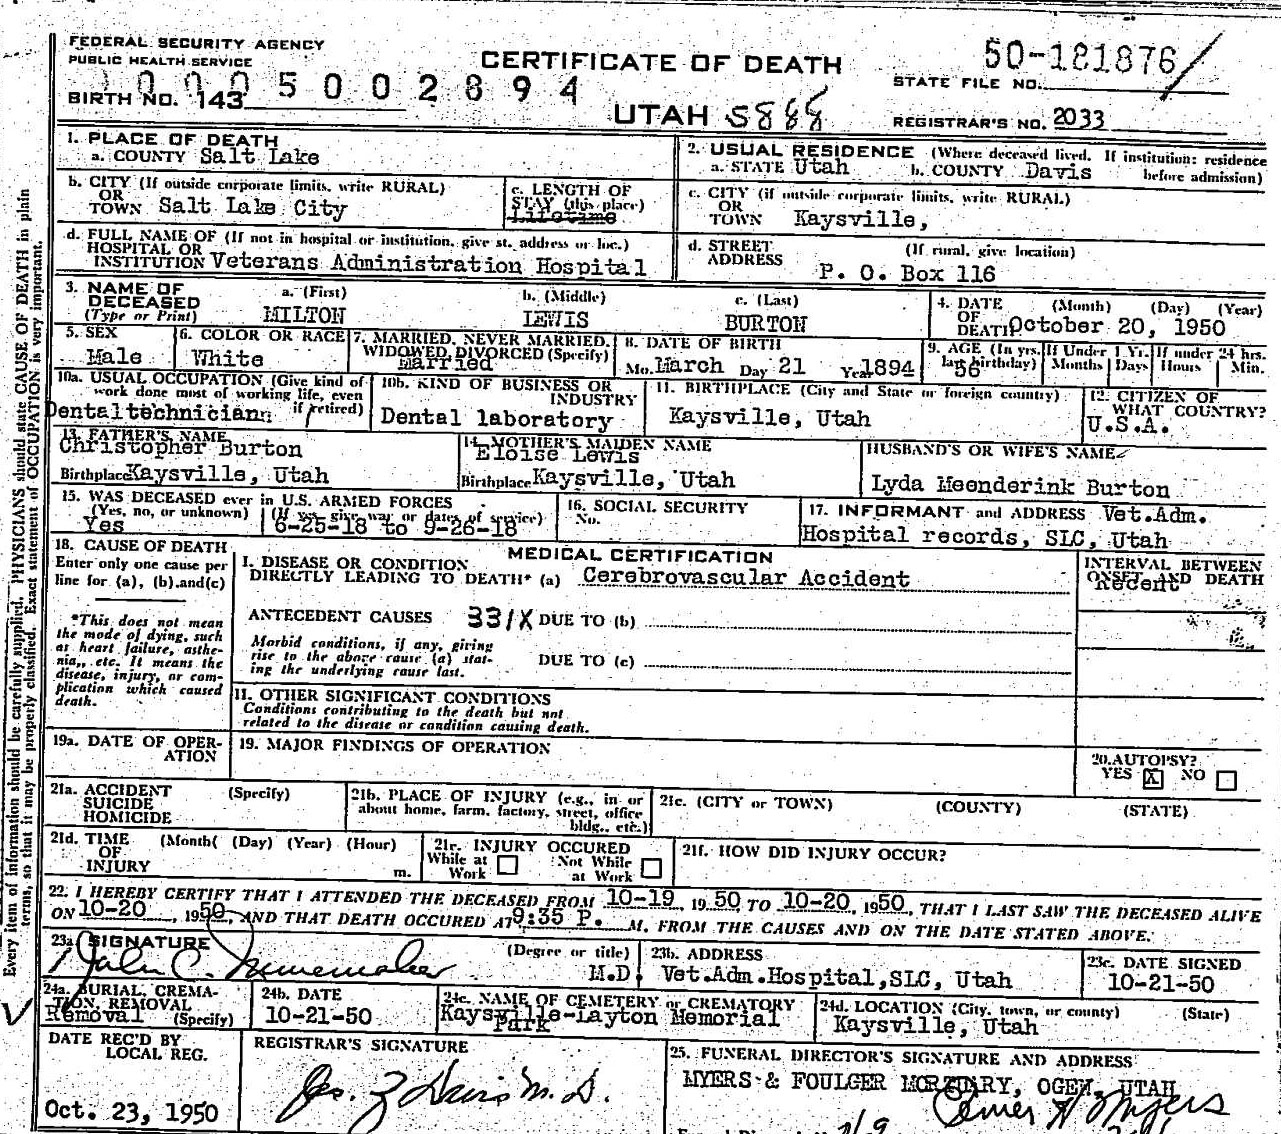 FEDERAL SECURITY AGENCY
PUBLIC HEALTH SERVICE
CERTIFICATE OF DEATH
50-181876
STATE FILE NO.
5002894
BIRTH NO. 143
UTAH
REGISTRAR'S NO. 2033
1. PLACE OF DEATH
a. COUNTY Salt Lake
2. USUAL RESIDENCE (Where deceased lived. If institution: residence before admission)
a. STATE Utah b. COUNTY Davis
b. CITY (If outside corporate limits, write RURAL)
OR
TOWN Salt Lake City
c. LENGTH OF
STAY (this place)
Lifetime
c. CITY (if outside corporate limits, write RURAL)
OR
TOWN Kaysville,
d. FULL NAME OF (If not in hospital or institution, give st. address or loc.)
HOSPITAL OR
INSTITUTION Veterans Administration Hospital
d. STREET
ADDRESS
(If rural, give location)
P. O. Box 116
3. NAME OF
DECEASED
(Type or Print)
a. (First)
MILTON
b. (Middle)
LEWIS
c. (Last)
BURTON
4. DATE
OF
DEATH
(Month) (Day) (Year)
October 20, 1950
5. SEX
Male
6. COLOR OR RACE
White
7. MARRIED, NEVER MARRIED,
WIDOWED, DIVORCED (Specify)
Married
8. DATE OF BIRTH
Mo. March Day 21 Year 1894
9. AGE (In yrs. last birthday)
56
If Under 1 Yr.
Months Days
If under 24 hrs.
Hours Min.
10a. USUAL OCCUPATION (Give kind of
work done most of working life, even
if retired)
Dental technician
10b. KIND OF BUSINESS OR
INDUSTRY
Dental laboratory
11. BIRTHPLACE (City and State or foreign country)
Kaysville, Utah
12. CITIZEN OF
WHAT COUNTRY?
U.S.A.
13. FATHER'S NAME
Christopher Burton
Birthplace Kaysville, Utah
14. MOTHER'S MAIDEN NAME
Eloise Lewis
Birthplace Kaysville, Utah
HUSBAND'S OR WIFE'S NAME
Lyda Meenderink Burton
15. WAS DECEASED ever in U.S. ARMED FORCES
(Yes, no, or unknown) (If yes, give war or dates of service)
Yes 6-25-18 to 9-26-18
16. SOCIAL SECURITY
No.
17. INFORMANT and ADDRESS Vet.Adm.
Hospital records, SLC, Utah
18. CAUSE OF DEATH
Enter only one cause per
line for (a), (b), and (c)
*This does not mean
the mode of dying, such
as heart failure, asthe-
nia,, etc. It means the
disease, injury, or com-
plication which caused
death.
MEDICAL CERTIFICATION
I. DISEASE OR CONDITION
DIRECTLY LEADING TO DEATH* (a) Cerebrovascular Accident
INTERVAL BETWEEN
ONSET AND DEATH
Recent
ANTECEDENT CAUSES 331X DUE TO (b)
Morbid conditions, if any, giving
rise to the above cause (a) stat-
ing the underlying cause last.
DUE TO (c)
11. OTHER SIGNIFICANT CONDITIONS
Conditions contributing to the death but not
related to the disease or condition causing death.
19a. DATE OF OPER-
ATION
19. MAJOR FINDINGS OF OPERATION
20. AUTOPSY?
YES X NO
21a. ACCIDENT
SUICIDE
HOMICIDE
(Specify)
21b. PLACE OF INJURY (e.g., in or
about home, farm, factory, street, office
bldg., etc.)
21c. (CITY or TOWN) (COUNTY) (STATE)
21d. TIME
OF
INJURY
(Month( (Day) (Year) (Hour)
m.
21e. INJURY OCCURED
While at Work
Not While at Work
21f. HOW DID INJURY OCCUR?
22. I HEREBY CERTIFY THAT I ATTENDED THE DECEASED FROM 10-19, 1950 TO 10-20, 1950, THAT I LAST SAW THE DECEASED ALIVE
ON 10-20, 1950, AND THAT DEATH OCCURED AT 9:35 P. M. FROM THE CAUSES AND ON THE DATE STATED ABOVE.
23a. SIGNATURE
John C.
(Degree or title)
M.D.
23b. ADDRESS
Vet.Adm.Hospital, SLC, Utah
23c. DATE SIGNED
10-21-50
24a. BURIAL, CREMA-
TION, REMOVAL
Removal (Specify)
24b. DATE
10-21-50
24c. NAME OF CEMETERY or CREMATORY
Kaysville-Layton Memorial
Park
24d. LOCATION (City, town, or county) (State)
Kaysville, Utah
DATE REC'D BY
LOCAL REG.
Oct. 23, 1950
REGISTRAR'S SIGNATURE
25. FUNERAL DIRECTOR'S SIGNATURE AND ADDRESS
MYERS & FOULGER MORTUARY, OGEN, UTAH
Every item of information should be carefully supplied. PHYSICIANS should state CAUSE OF DEATH in plain
terms, so that it may be properly classified. Exact statement of OCCUPATION is very important.